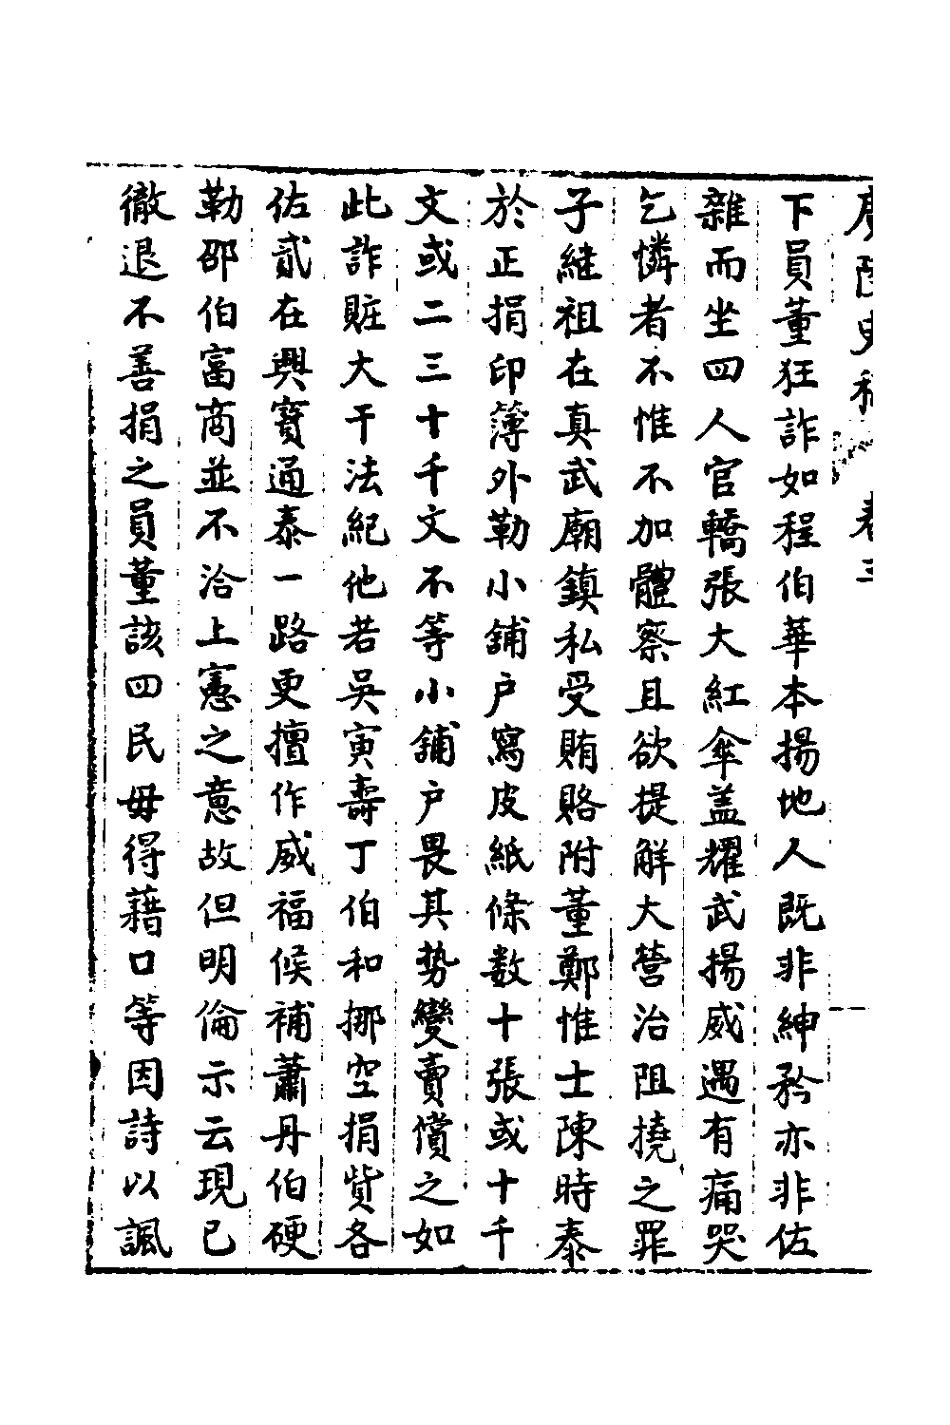 卷三
下員董狂詐如程伯華本揚地人既非紳矜亦非佐
雜而坐四人官轎張大紅傘盖耀武揚威遇有痛哭
乞憐者不惟不加體察且欲提解大營治阻撓之罪
子継祖在真武廟鎮私受賄賂附董鄭惟士陳時泰
於正捐印簿外勒小舖户寫皮紙條数十張或十千
文或二三十千文不等小舖户畏其势變賣償之如
此詐賍大干法紀他若吳寅壽丁伯和挪空捐貲各
佐貳在興寳通泰一路更擅作威福候補蕭丹伯硬
勒邵伯富商並不洽上憲之意故但明倫示云現已
徹退不善捐之員董該四民毋得藉口等因詩以諷